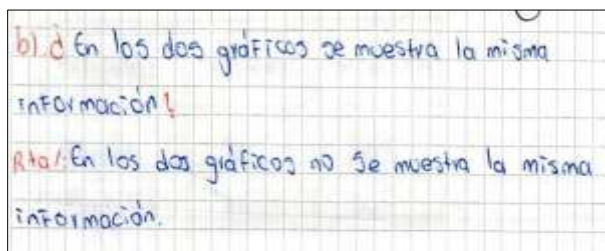 b) ¿ En los dos gráficos se muestra la misma
información?
Rta/: En los dos gráficos no se muestra la misma
información.